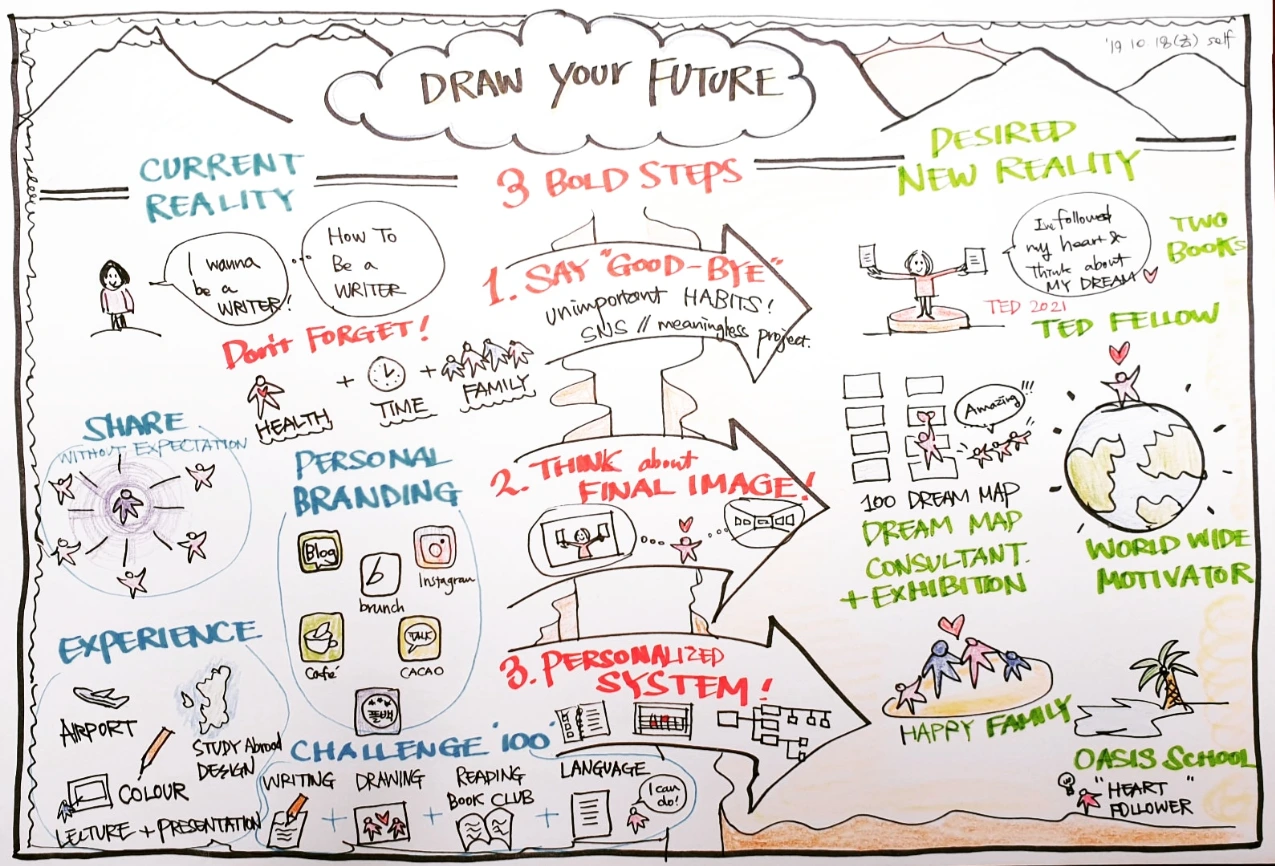 DRAW your FUTURE
'19 10 18(금) self
CURRENT
REALITY
I wanna
be a
WRITER!
HOW TO
Be a
WRITER
Don't FORGET!
HEALTH
+
TIME
+
FAMILY
SHARE
WITHOUT EXPECTATION
PERSONAL
BRANDING
Blog
b
brunch
Instagram
Café
TALK
CACAO
플백
EXPERIENCE
AIRPORT
STUDY Abroad
DESIGN
COLOUR
LECTURE + PRESENTATION
CHALLENGE '100'
WRITING
+
DRAWING
+
READING
BOOK CLUB
+
LANGUAGE
I can
do!
3 BOLD STEPS
1. SAY "GOOD-BYE"
unimportant HABITS!
SNS // meaningless project.
2. THINK about
FINAL IMAGE!
3. PERSONALIZED
SYSTEM!
DESIRED
NEW REALITY
I've followed
my heart &
Think about
MY DREAM
TWO
BOOKS
TED 2021
TED FELLOW
Amazing
!!!
100 DREAM MAP
DREAM MAP
CONSULTANT.
+ EXHIBITION
WORLD WIDE
MOTIVATOR
HAPPY FAMILY
OASIS SCHOOL
"HEART"
FOLLOWER